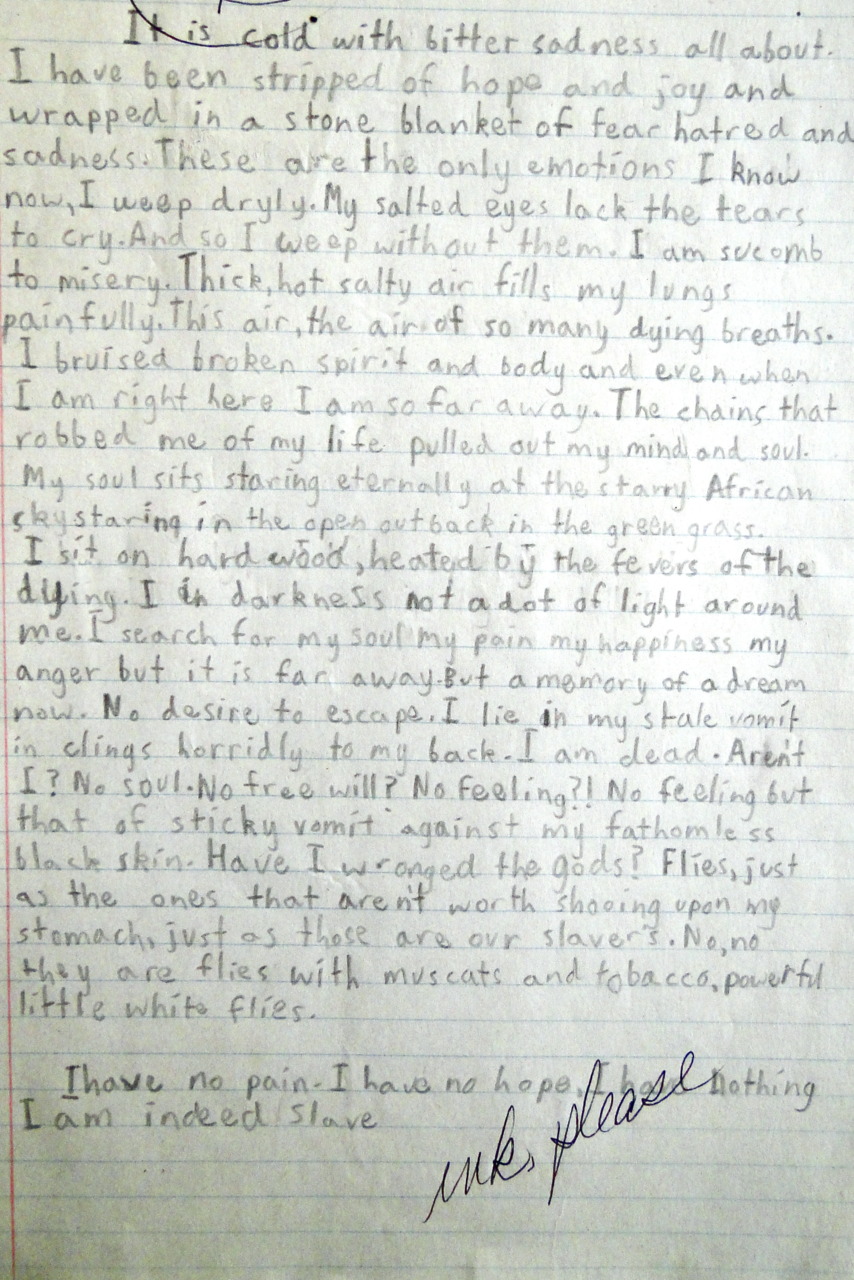 It is cold with bitter sadness all about.
I have been stripped of hope and joy and
wrapped in a stone blanket of fear hatred and
sadness. These are the only emotions I know
now, I weep dryly. My salted eyes lack the tears
to cry. And so I weep without them. I am sucomb
to misery. Thick, hot salty air fills my lungs
painfully. This air, the air of so many dying breaths.
I bruised broken spirit and body and even when
I am right here I am so far away. The chains that
robbed me of my life pulled out my mind and soul.
My soul sits staring eternally at the starry African
sky staring in the open outback in the green grass.
I sit on hard wood, heated by the fevers of the
dying. I in darkness not a dot of light around
me. I search for my soul my pain my happiness my
anger but it is far away. But a memory of a dream
now. No desire to escape. I lie in my stale vomit
in clings horridly to my back. I am dead. Aren't
I? No soul. No free will? No feeling?! No feeling but
that of sticky vomit against my fathomless
black skin. Have I wronged the gods? Flies, just
as the ones that aren't worth shooing upon my
stomach, just as those are our slaver's. No, no
they are flies with muscats and tobacco, powerful
little white flies.
I have no pain. I have no hope. I have nothing
I am indeed slave
ink, please